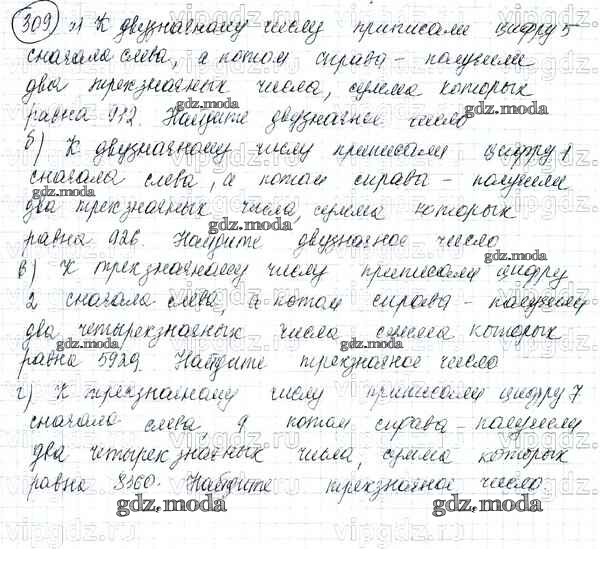 309 а) К двузначному числу приписали цифру 5
сначала слева, а потом справа - получили
два трехзначных числа, сумма которых
равна 912. Найдите двузначное число
б) К двузначному числу приписали цифру 1
сначала слева, а потом справа - получили
два трехзначных числа, сумма которых
равна 926. Найдите двузначное число
в) К трехзначному числу приписали цифру
2 сначала слева, а потом справа - получили
два четырехзначных числа, сумма которых
равна 5929. Найдите трехзначное число
г) К трехзначному числу приписали цифру 7
сначала слева, а потом справа - получили
два четырехзначных числа, сумма которых
равна 8360. Найдите трехзначное число